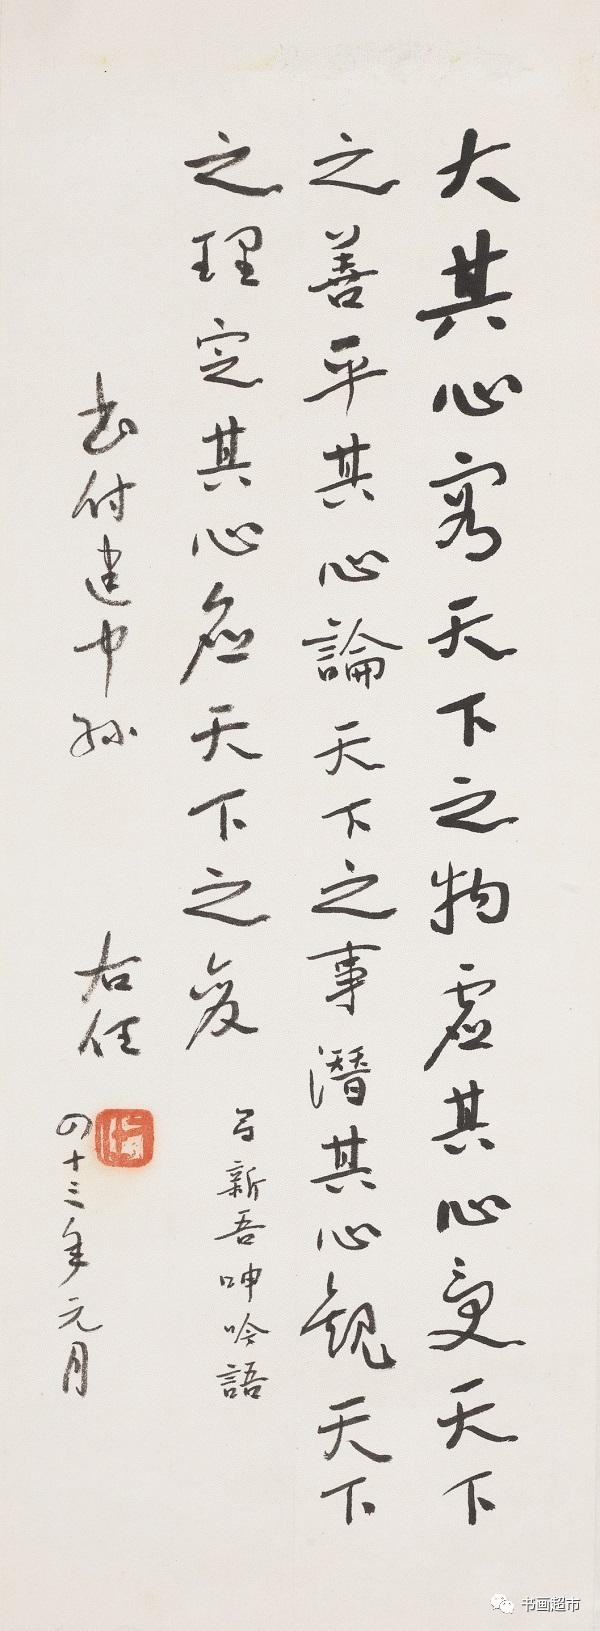 大其心容天下之物虛其心受天下
之善平其心論天下之事潛其心觀天下
之理定其心應天下之變
呂新吾呻吟語
書付建中孫
右任
四十三年元月
书画超市